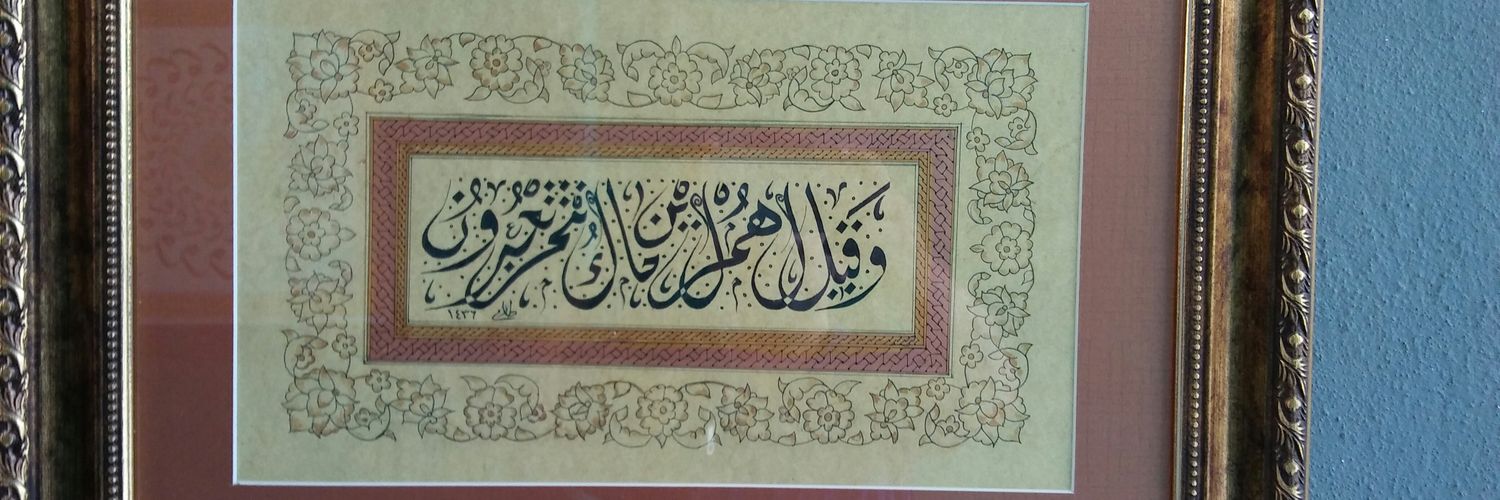 وَقِيلَ لَهُمْ أَيْنَ مَا كُنْتُمْ تَعْبُدُونَ
١٤٣٦